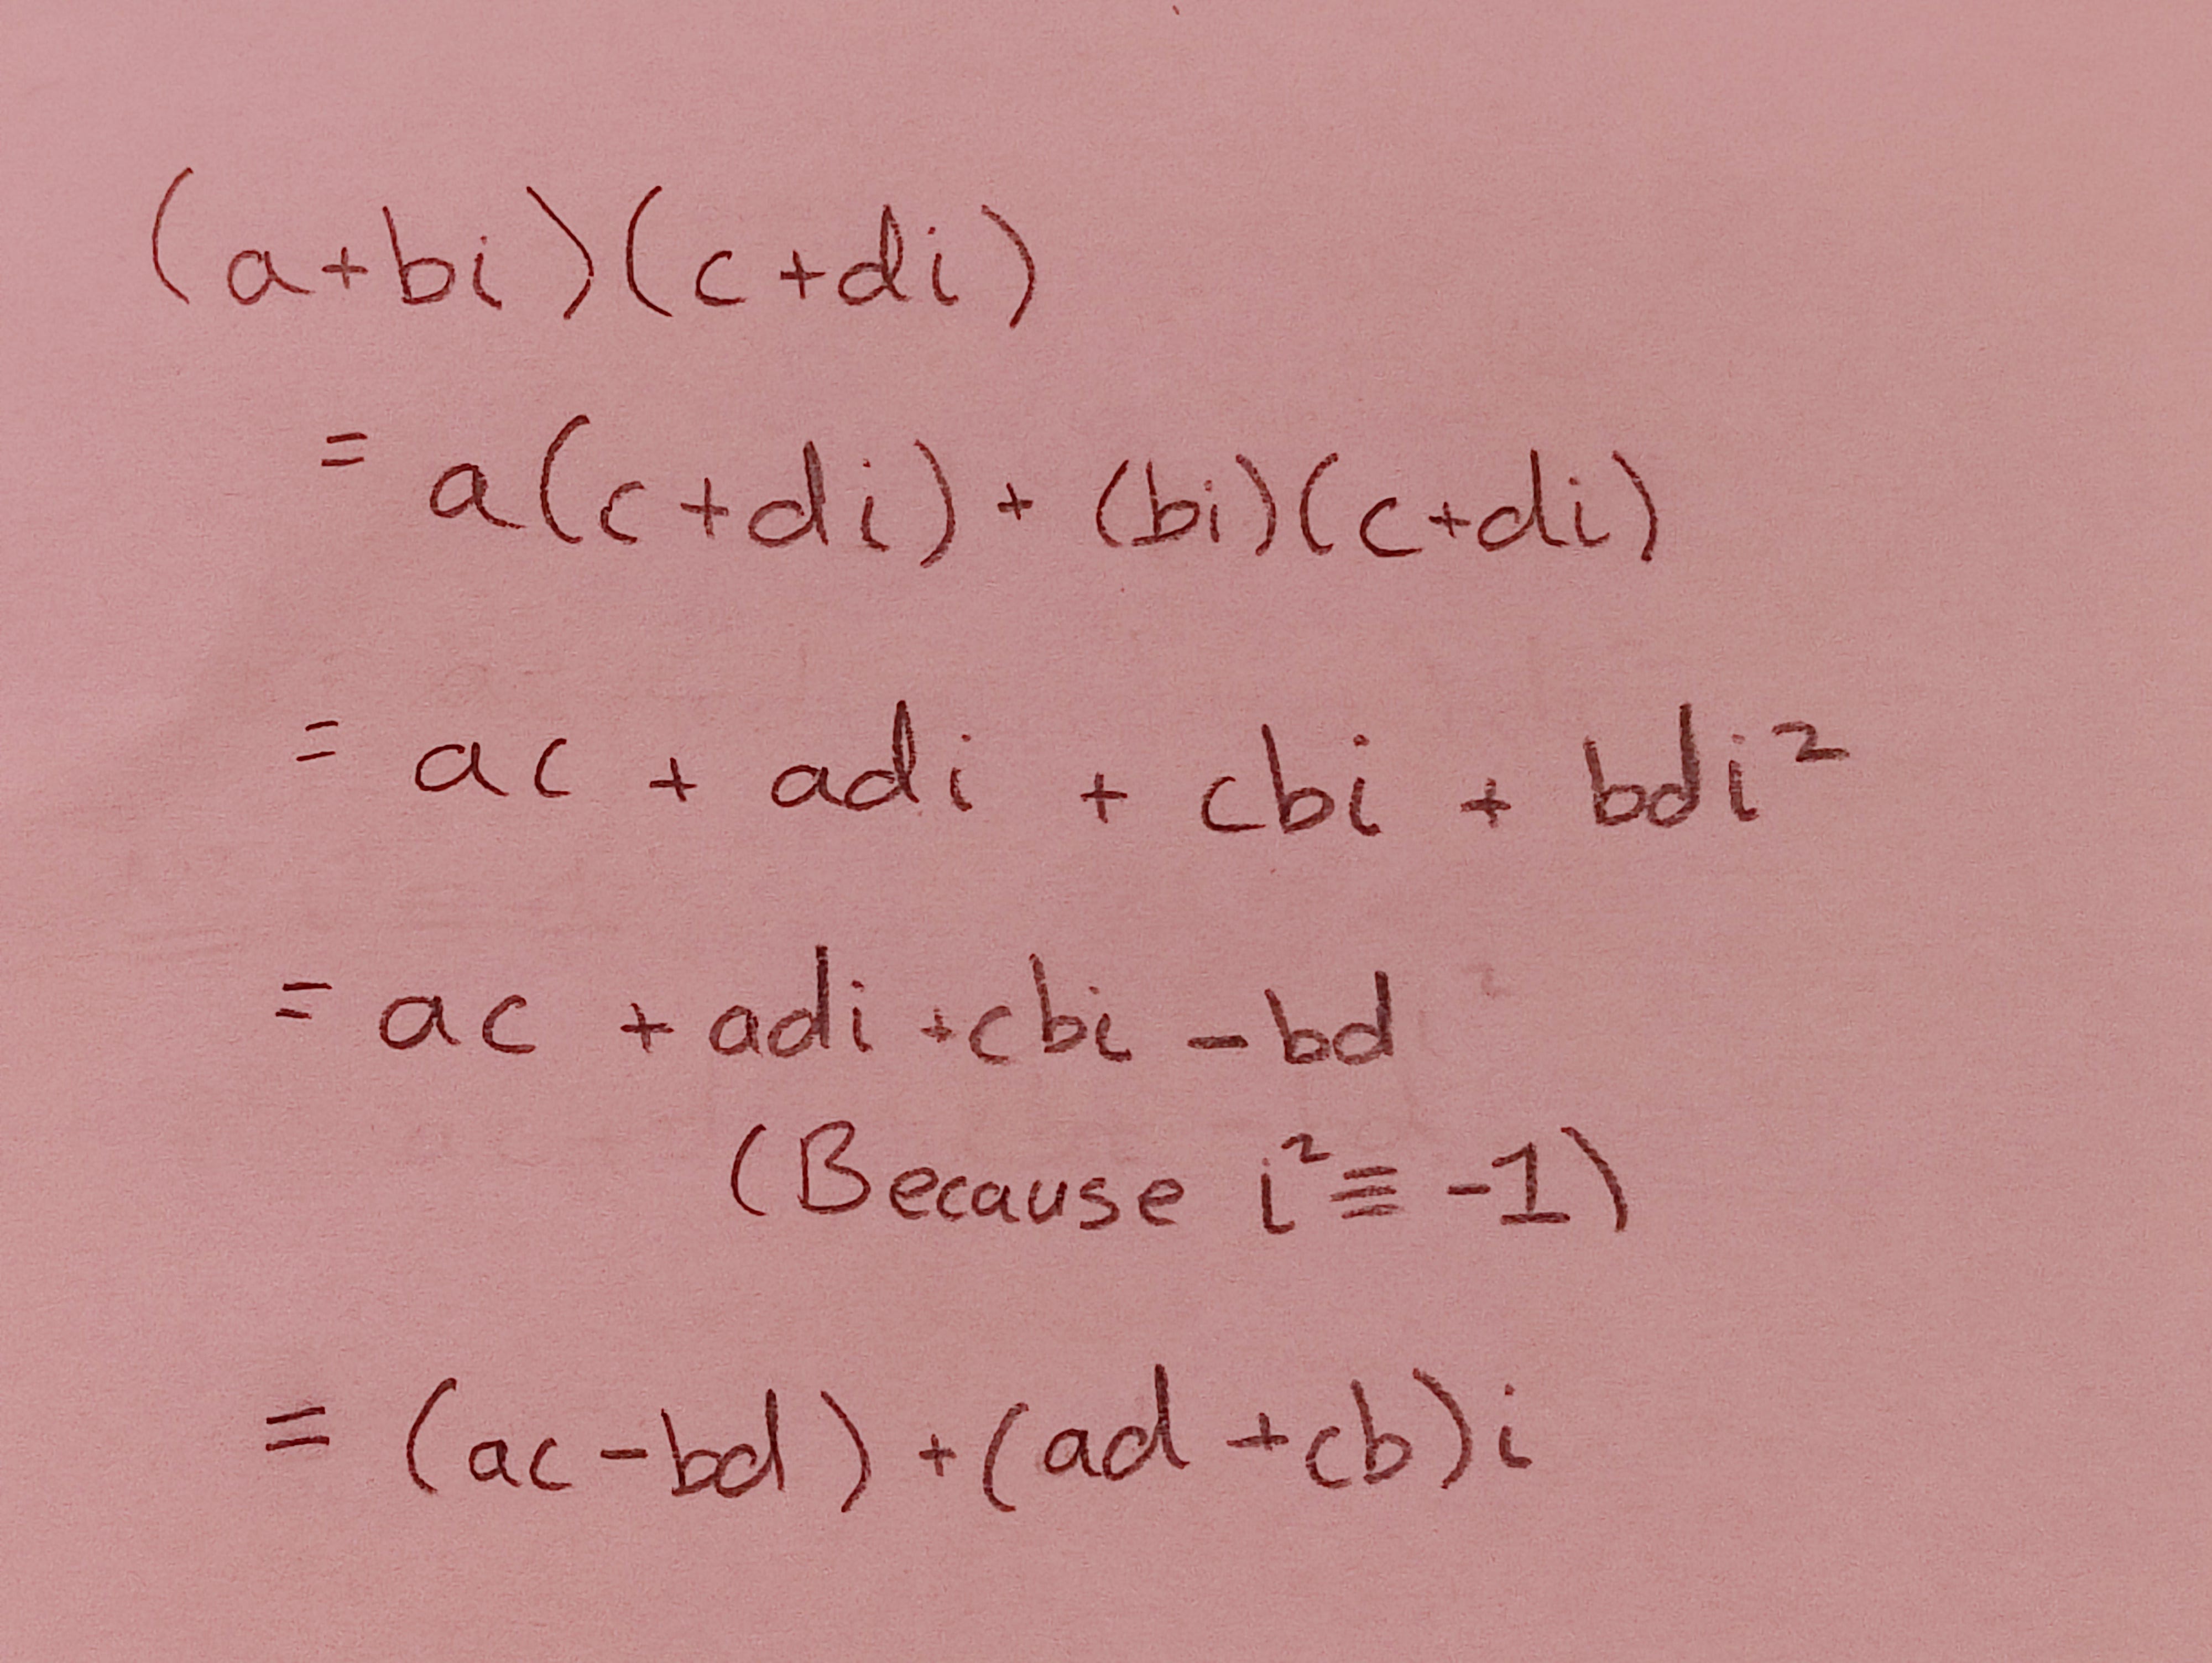 (a+bi)(c+di)
= a(c+di) + (bi)(c+di)
= ac + adi + cbi + bdi²
= ac + adi + cbi - bd
(Because i² ≡ -1)
= (ac-bd) + (ad+cb)i